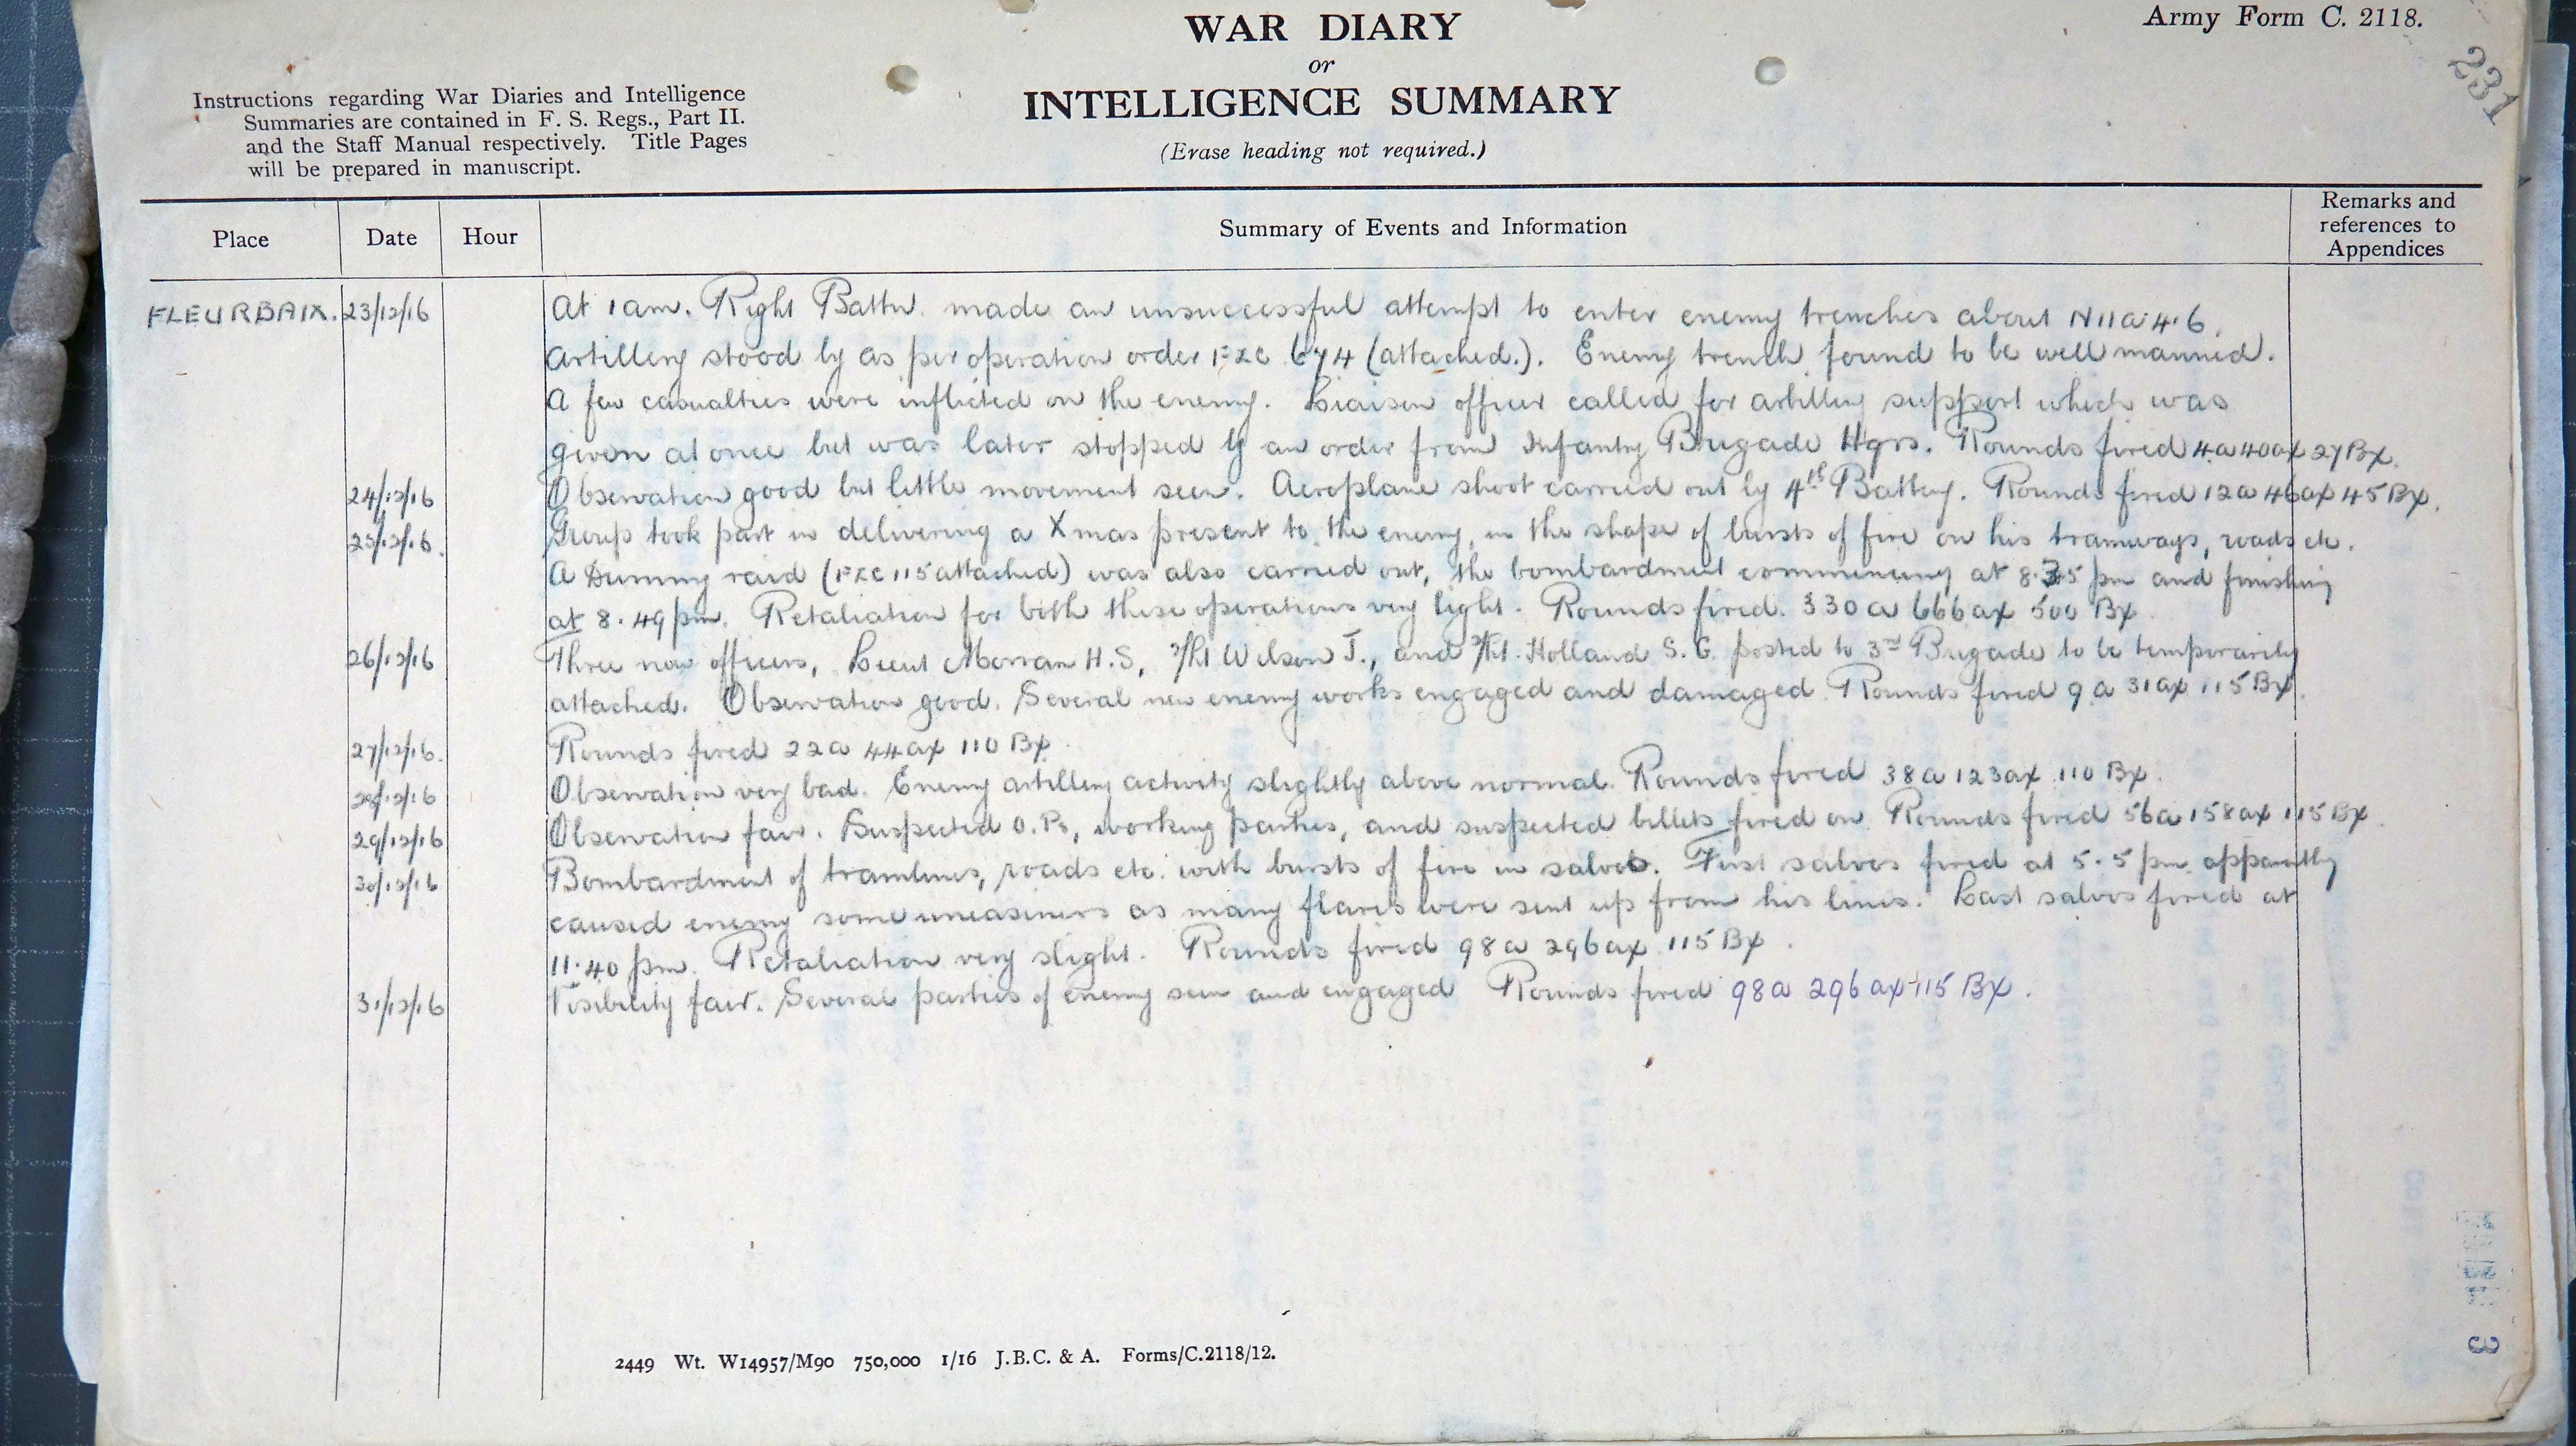 WAR DIARY
or
INTELLIGENCE SUMMARY
(Erase heading not required.)
Army Form C. 2118.
231
Instructions regarding War Diaries and Intelligence
Summaries are contained in F. S. Regs., Part II.
and the Staff Manual respectively. Title Pages
will be prepared in manuscript.
Place Date Hour Summary of Events and Information Remarks and
references to
Appendices
FLEURBAIX. 23/12/16 At 1 am. Right Battn. made an unsuccessful attempt to enter enemy trenches about N11a.4.6.
Artillery stood by as per operation order FZC 674 (attached.). Enemy trench found to be well manned.
A few casualties were inflicted on the enemy. Liaison officer called for artillery support which was
given at once but was later stopped by an order from Infantry Brigade Hqrs. Rounds fired 4a 40ax 27Bx.
24/12/16 Observation good but little movement seen. Aeroplane shoot carried out by 4th Battery. Rounds fired 12a 46ax 45Bx.
25/12/16. Group took part in delivering a Xmas present to the enemy, in the shape of bursts of fire on his tramways, roads etc.
A Dummy raid (FZC 115 attached) was also carried out, the bombardment commencing at pm and finishing
at 8.49 pm. Retaliation for both these operations very light. Rounds fired. 330 a 666 ax 500 Bx
26/12/16 Three new officers, Lieut H.S, 2/Lt Wilson J., and 2/Lt. Holland S. G. posted to 3rd Brigade to be temporarily
attached. Observation good. Several new enemy works engaged and damaged. Rounds fired 9 a 31ax 115 Bx.
27/12/16. Rounds fired 22a 44ax 110 Bx.
28/12/16 Observation very bad. Enemy artillery activity slightly above normal. Rounds fired 38a 123ax 110 Bx.
29/12/16 Observation fair. Suspected O.Ps, working parties, and suspected billets fired on. Rounds fired 56a 158ax 115 Bx.
30/12/16 Bombardment of tramlines, roads etc. with bursts of fire in salvos. First salvos fired at 5.5 pm. apparently
caused enemy some uneasiness as many flares were sent up from his lines. Last salvos fired at
11.40 pm. Retaliation very slight. Rounds fired 98a 296ax 115 Bx.
31/12/16 Visibility fair. Several parties of enemy seen and engaged Rounds fired 98a 296 ax 115 Bx.
2449 Wt. W14957/M90 750,000 1/16 J.B.C. & A. Forms/C.2118/12.
3